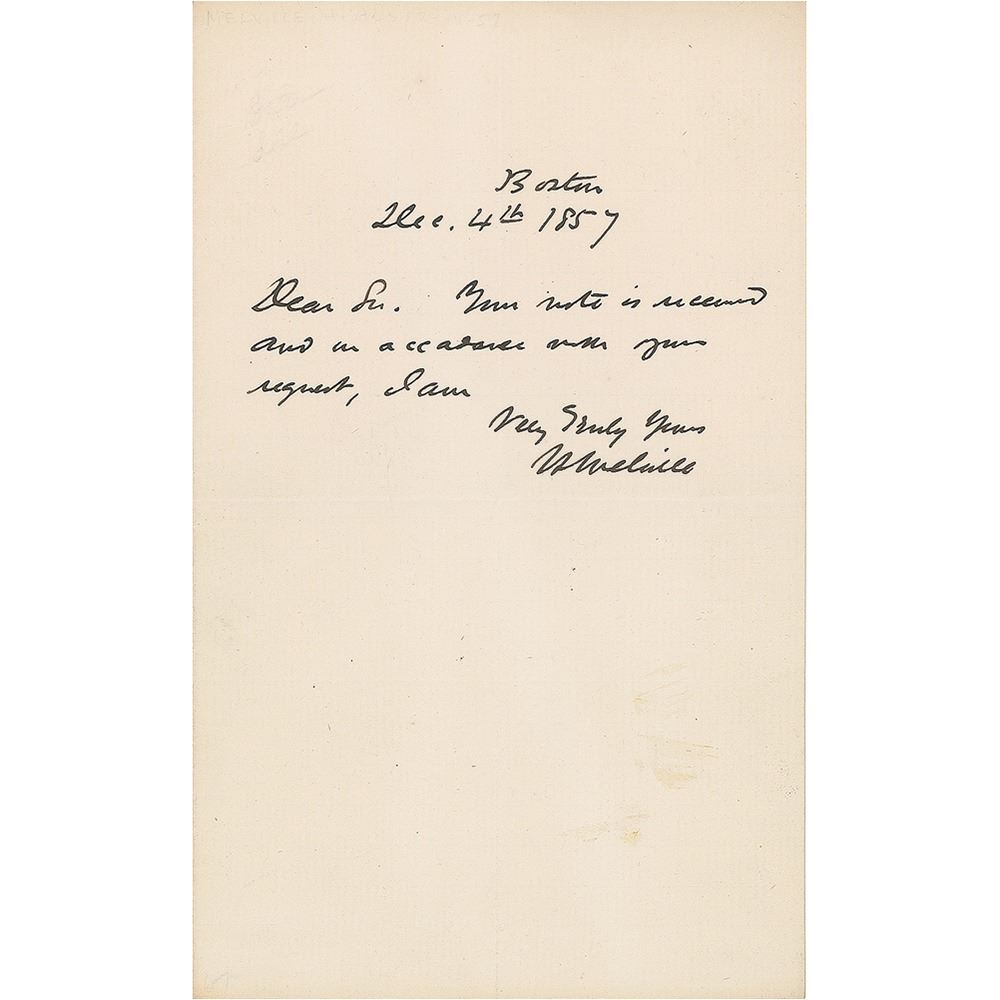 Boston
Dec. 4th 1857
Dear Sir. Your note is received
and in accordance with your
request, I am
Very Truly Yours
H Melville